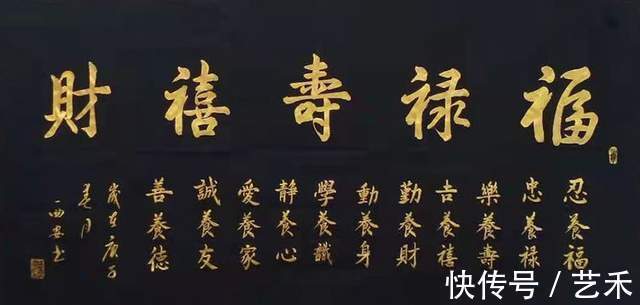 福禄壽禧財
忍養福
忠養禄
樂養壽
吉養禧
勤養財
動養身
學養識
静養心
愛養家
誠養友
善養德
歲在庚子
快传号 / 艺禾